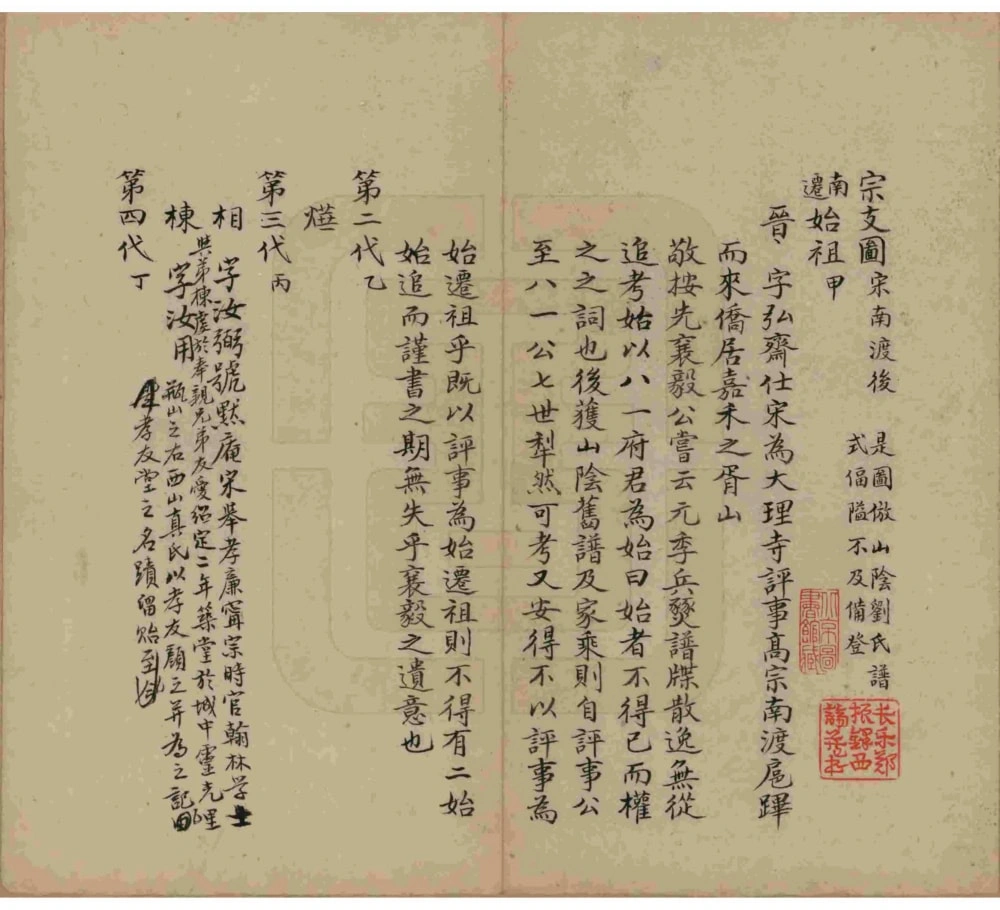 宗支圖 宋南渡後 是圖倣山陰劉氏譜
式偪隘不及備登
南遷始祖甲
晉 字弘齋仕宋為大理寺評事高宗南渡扈蹕
而來僑居嘉禾之胥山
敬按先襄毅公嘗云元季兵燹譜牒散逸無從
追考姑以八一府君為始曰始者不得已而權
之之詞也後獲山陰舊譜及家乘則自評事公
至八一公七世犁然可考又安得不以評事為
始遷祖乎既以評事為始遷祖則不得有二始
始追而謹書之期無失乎襄毅之遺意也
第二代乙
第三代丙
相 字汝弼號默庵宋舉孝廉寧宗時官翰林學士
與弟棟虔於奉親兄弟友愛紹定二年築堂於城中靈光里
棟 字汝用
瓶山之右西山真氏以孝友顏之并為之記
孝友堂之名蹟留貽至
第四代丁
长乐郑振铎西谛藏书
北京圖書館藏